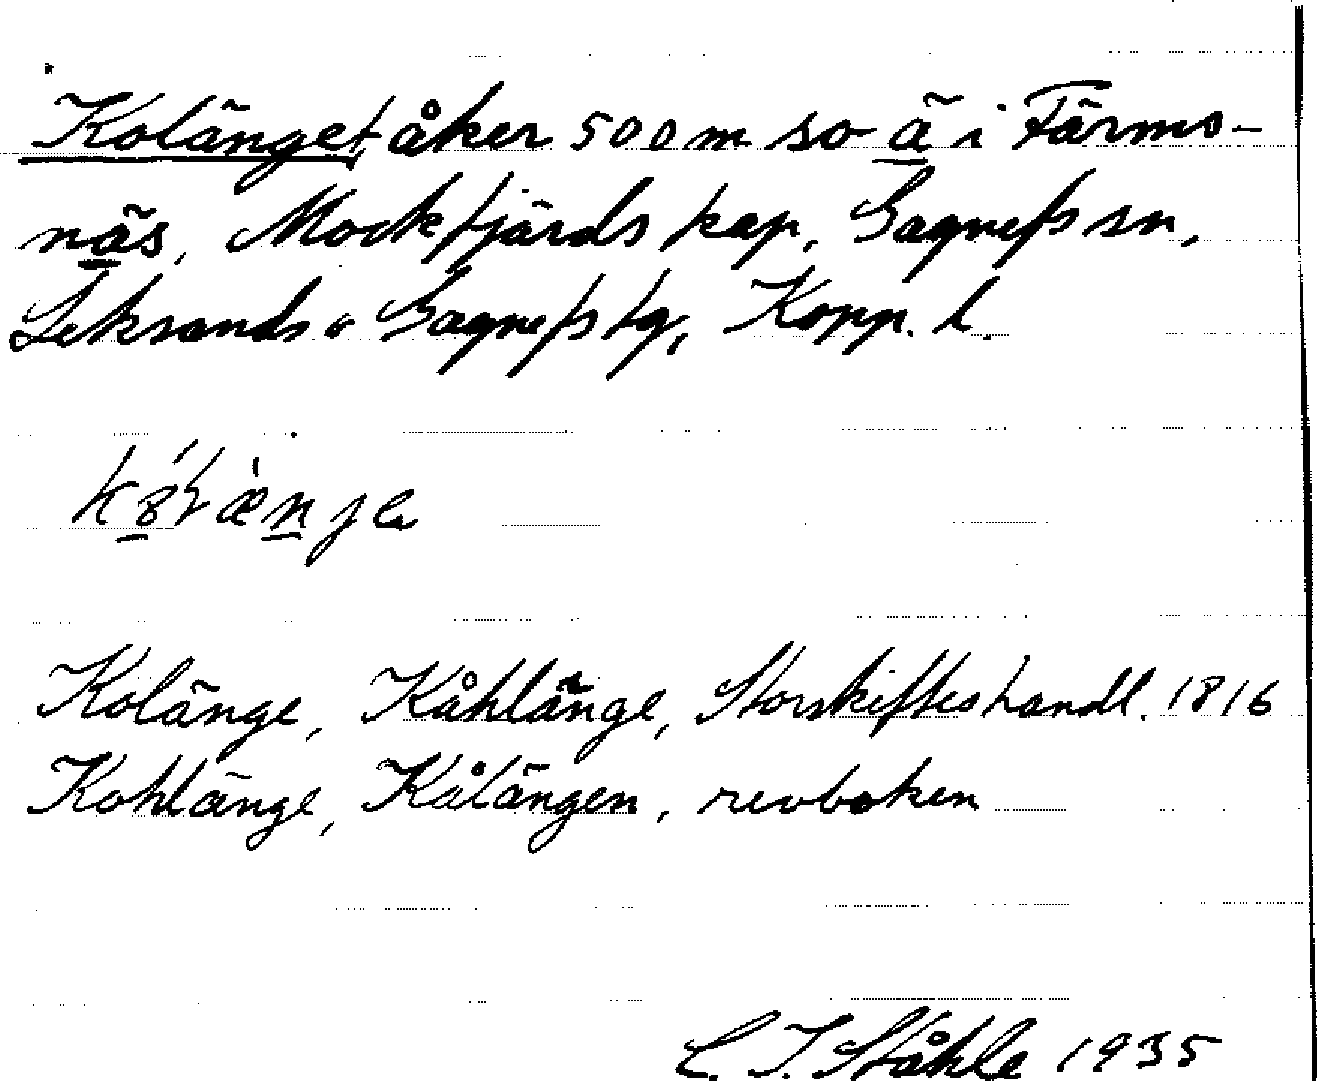 Kolänget åker 500 m so ä i Färms-
näs, Mockfjärds kap, Gagnefs sn,
Leksands o Gagnefs tg, Kopp. l.
Kolänge, Kåhlänge, Storskifteshandl. 1816
Kohlänge, Kålängen, revboken
C. I. Ståhle 1935